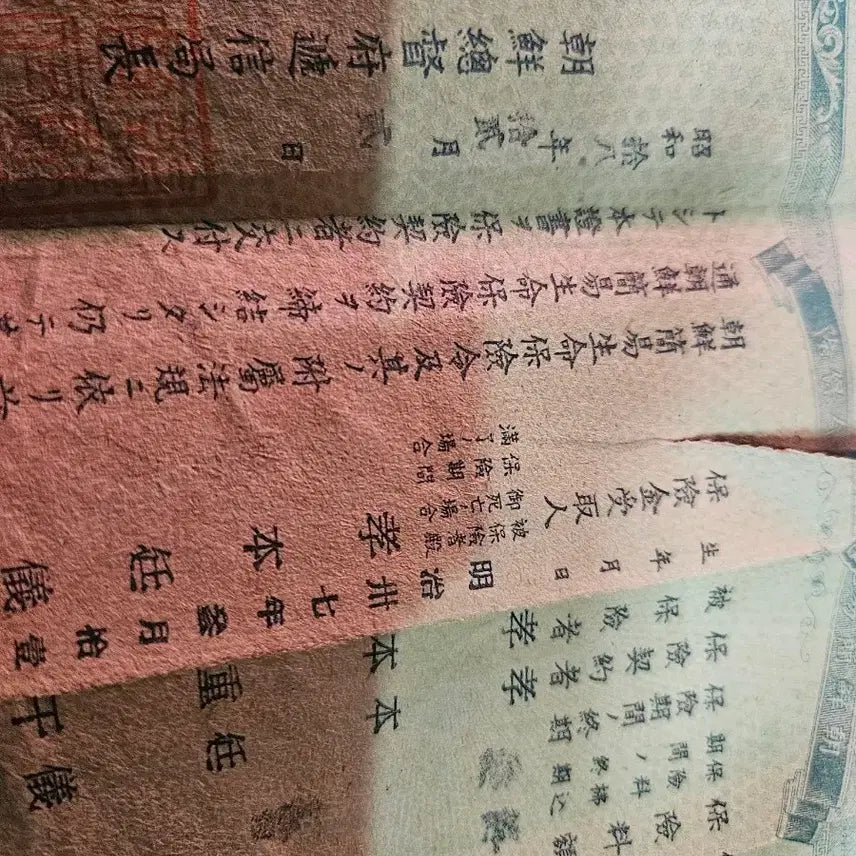 保險料
保險料拂込
期間ノ終期
保險期間ノ終期
保險契約者 孝本任儀
被保險者 孝本重千
生年月日 明治卅七年參月拾壹
保險金受取人
被保險者殿
御死亡ノ場合 孝本任儀
保險期間
滿了ノ場合
朝鮮簡易生命保險令及其ノ附屬法規ニ依リ
通朝鮮簡易生命保險契約ヲ締結シタリ仍テ
トシテ本證書ヲ保險契約者ニ交付ス
昭和拾八年拾貳月 日
朝鮮總督府遞信局長